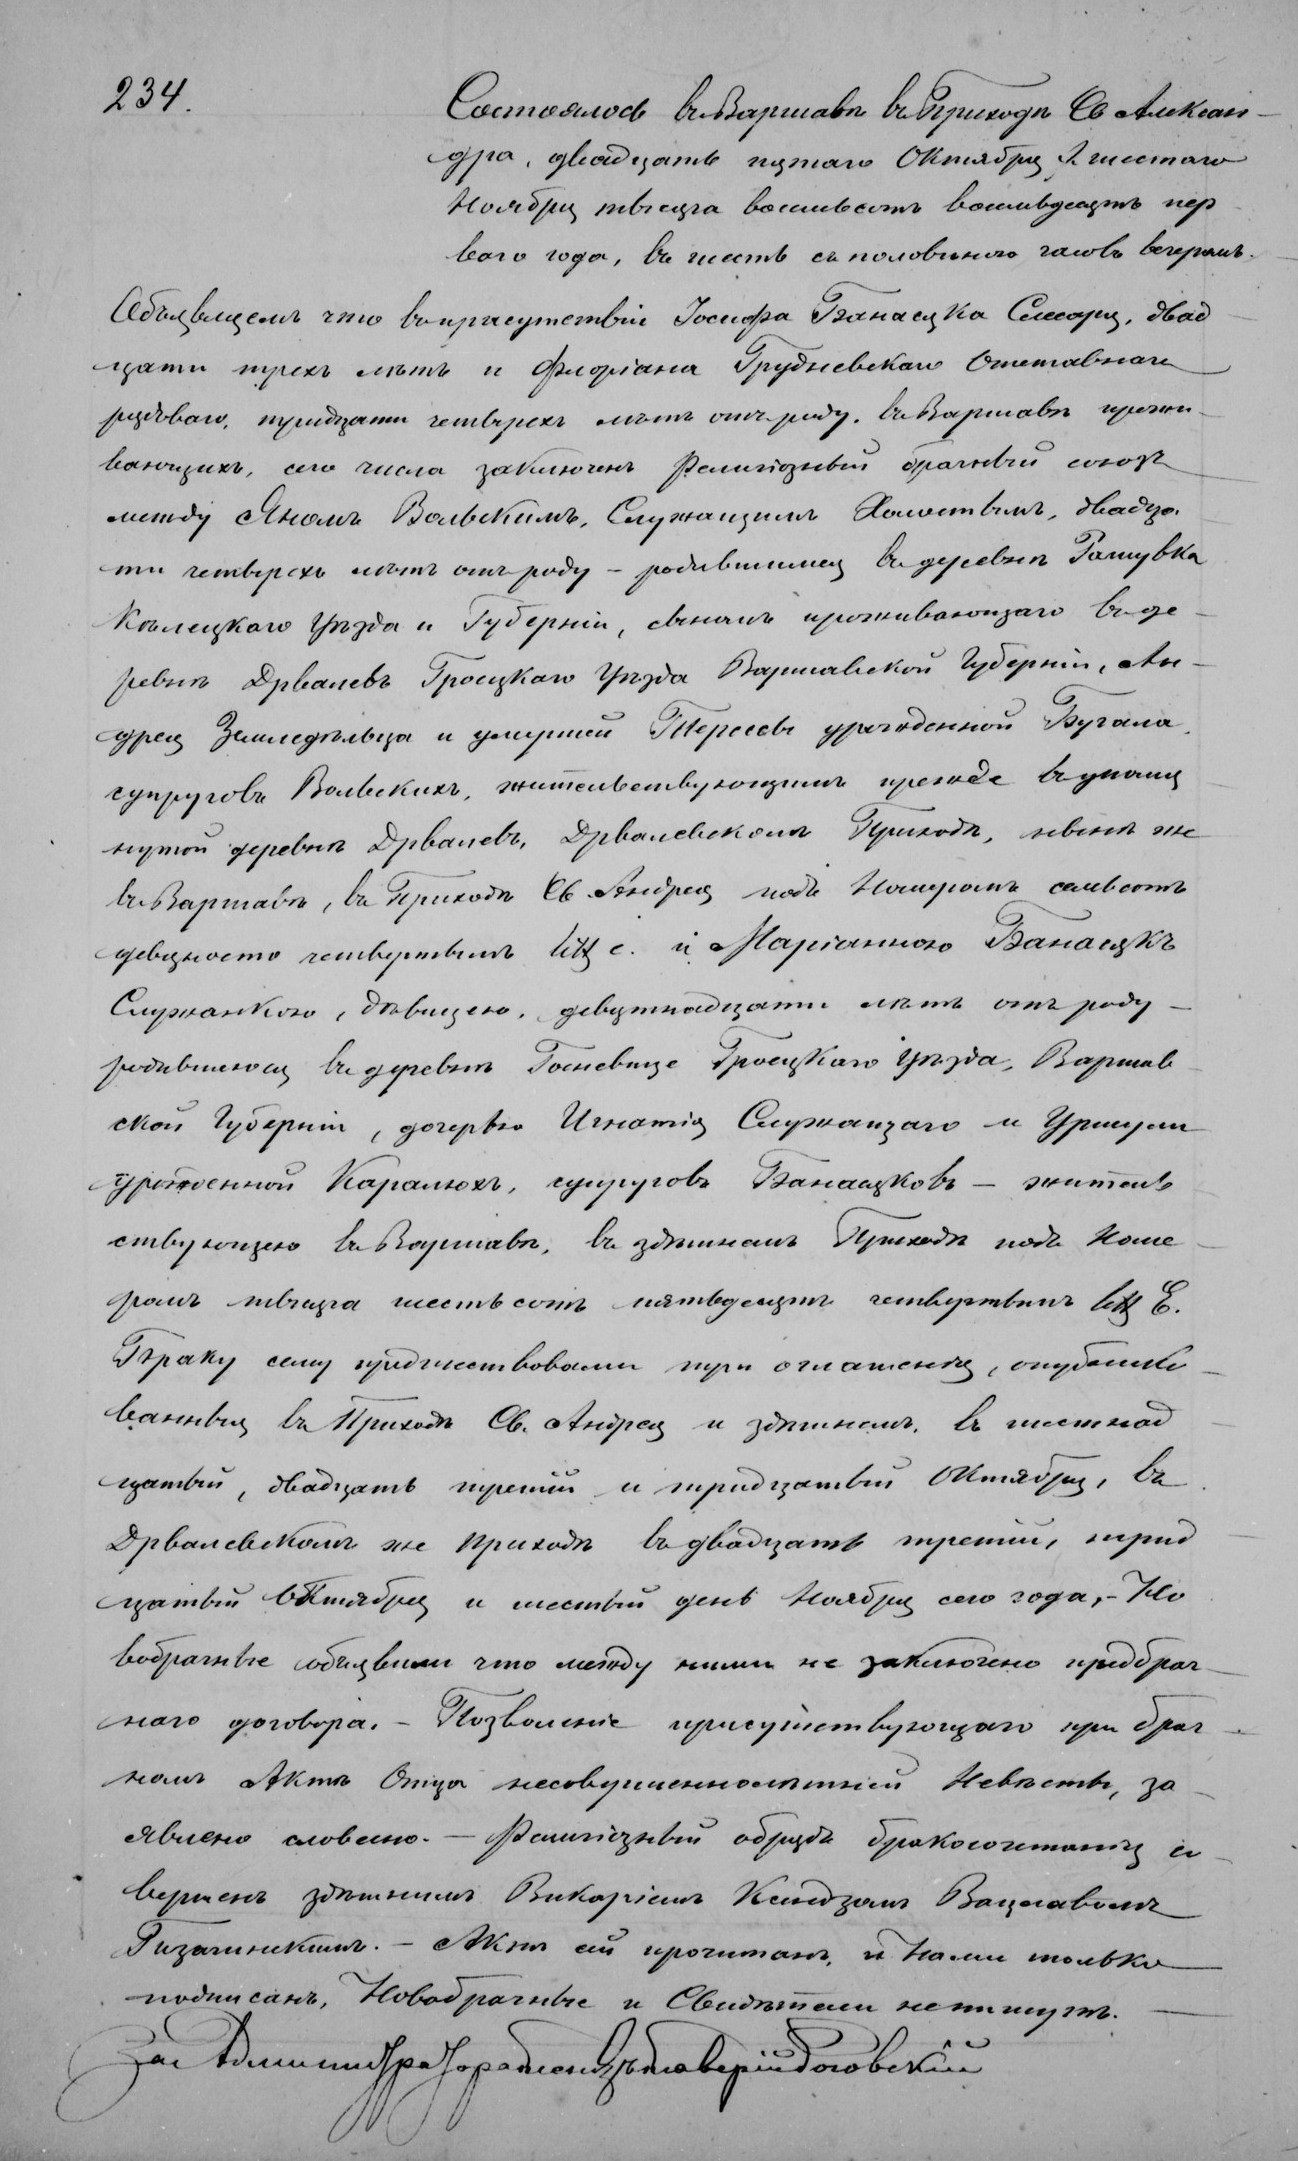 234.
Состоялось въ Варшавѣ въ Приходѣ Св Алексан-
дра, двадцать пятаго Октября / шестаго
Ноября тысяча восемьсотъ восемьдесятъ пер
ваго года, въ шесть съ половиною часовъ вечеромъ.
Объявляемъ что въ присутствіи Іосифа Банасяка Слесаря, двад
цати трехъ лѣтъ и Флоріана Грудневскаго Отставнаго
рядоваго, тридцати четырехъ лѣтъ отъ роду, въ Варшавѣ прожи-
вающихъ, сего числа заключенъ Религіозный брачный союзъ
между Яномъ Вольскимъ, Служащимъ Холостымъ, двадца-
ти четырехъ лѣтъ отъ роду – родившимся въ деревнѣ Рашувка
Кѣлецкаго Уѣзда и Губерніи, сыномъ проживающаго въ де-
ревнѣ Дрвалевъ Гроецкаго Уѣзда Варшавской Губерніи, Ан-
дрея Земледѣльца и умершей Терессы урожденной Бугала,
супруговъ Вольскихъ, жительствующимъ прежде въ упомя
нутой деревнѣ Дрвалевъ, Дрвалевскомъ Приходѣ, нынѣ же
въ Варшавѣ, въ Приходѣ Св Андрея подъ Номеромъ семьсотъ
девяносто четвертымъ litt c. и Маріанною Банасякъ
Служанкою, дѣвицею, девятнадцати лѣтъ отъ роду –
родившеюся въ деревнѣ Госневице Гроецкаго Уѣзда, Варшав
ской Губерніи, дочерью Игнатія Служащаго и Уршули
урожденной Каралюхъ, супруговъ Банасяковъ – житель
ствующею въ Варшавѣ, въ здѣшнемъ Приходѣ подъ Номе-
ромъ тысяча шестьсотъ пятьдесятъ четвертымъ litt E.
Браку сему предшествовали три оглашенія, опублико-
ванныя въ Приходѣ Св. Андрея и здѣшнемъ, въ шестнад
цатый, двадцать третій и тридцатый Октября, въ
Дрвалевскомъ же приходѣ въ двадцать третій, трид
цатый Октября и шестый день Ноября сего года, – Но
вобрачные объявили что между ними не заключено предбрач-
наго договора. – Позволеніе присутствующаго при брач-
номъ Актѣ Отца несовершеннолѣтней Невѣсты, за-
явлено словесно. – Религіозный обрядъ бракосочетанія со-
вершенъ здѣшнимъ Викаріемъ Ксендзомъ Вацлавомъ
Актъ сей прочитанъ, и Нами только
подписанъ, Новобрачные и Свидѣтели непишутъ.
За Администратора